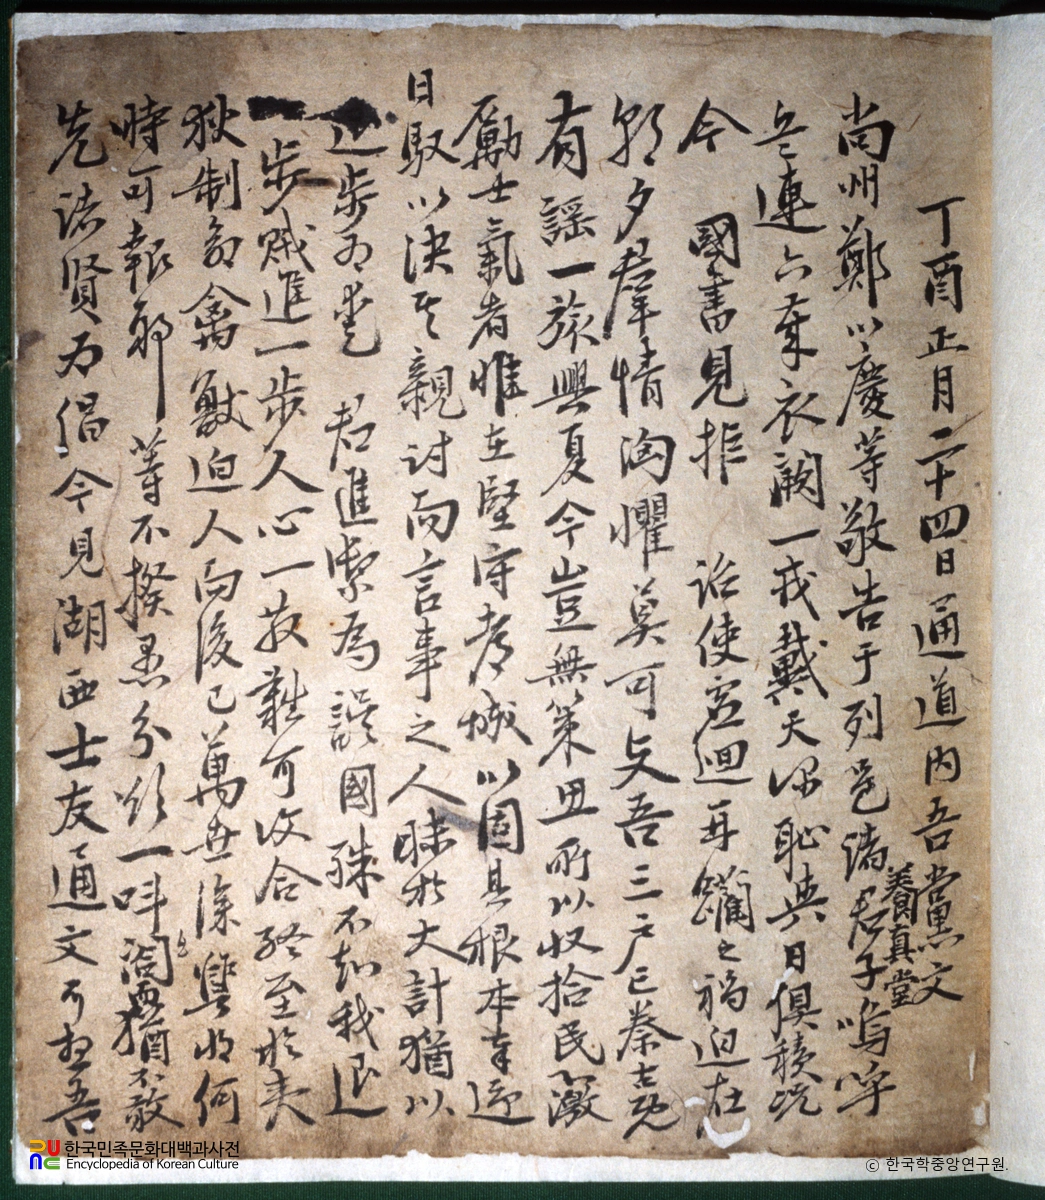 丁酉正月二十四日通道內吾黨文
養真堂
尚州鄭以慶等敬告于列邑諸君子嗚呼
連六年衣一戎戴天深恥與日俱積
今 國書見拒 詔使空迴再之禍迫在
朝夕羣情洶懼莫可 吾三戶已秦
有謠一旅興夏今豈無策思所以收拾民激
勵士氣者惟在堅守城以固其根本
日馭以決其親討而言事之人昧於大計猶以
退步為 君進禦為誤國殊不知我退
一步賊進一步人心一散難可收合終至於夷
狄制禽獸迫人而後已萬世深讐將何
時可報耶 等不揆愚分一呌閤猶不敢
先諸賢為倡今見湖西士友通文可吾
한국민족문화대백과사전
Encyclopedia of Korean Culture
ⓒ 한국학중앙연구원.